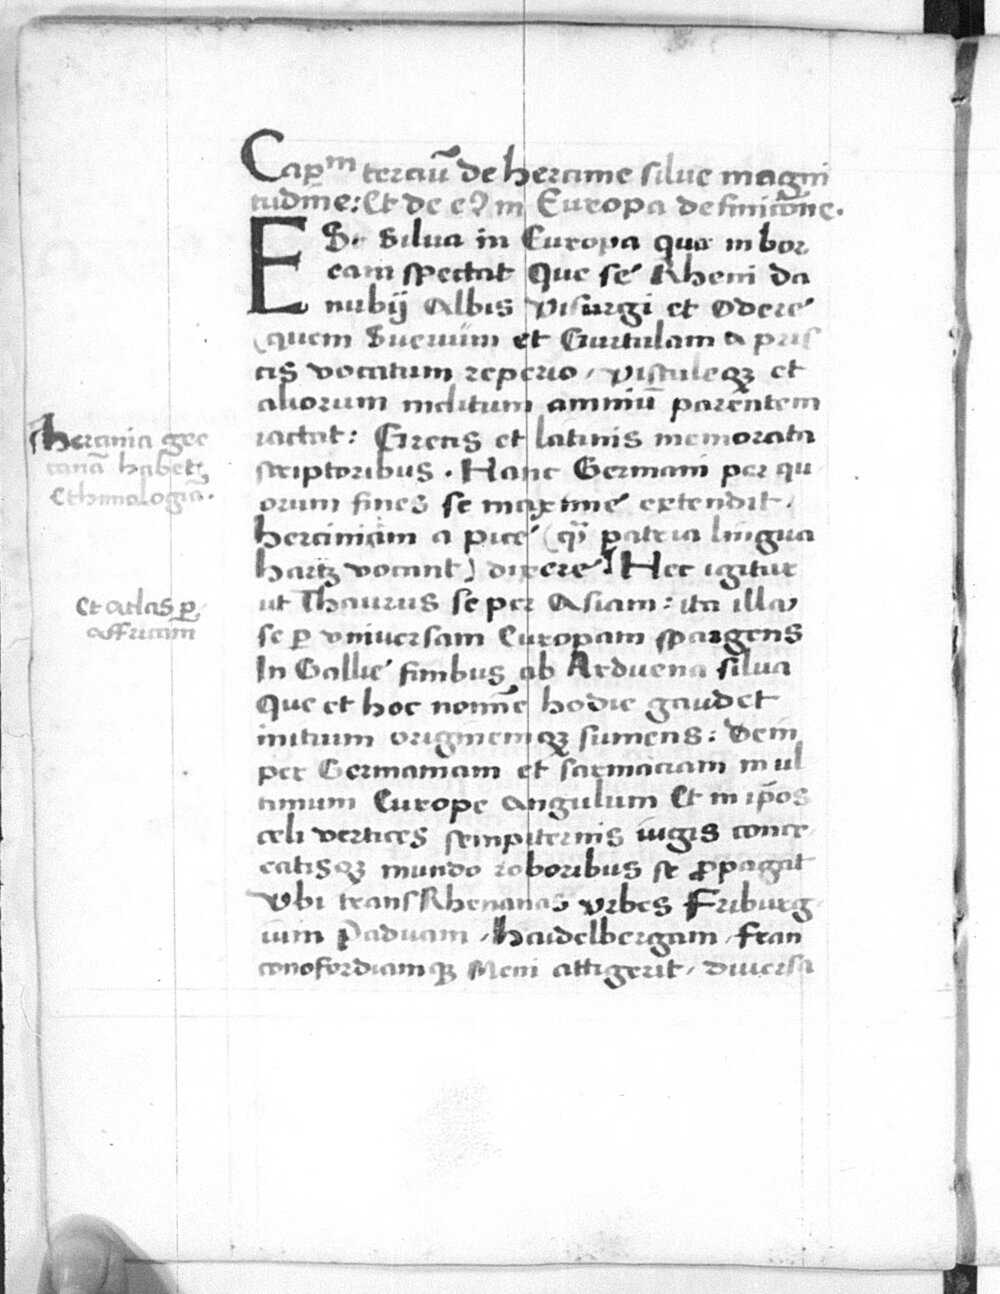 Capᵐ terciū de hercinie silue magni
tudine: Et de eꝰ in Europa definicōne.
ESt Silua in Europa qua in bor
eam spectat Que se Rheni da
nubij Albis visurgi et Odere
(quem Sueuum et Guttulam a pris
cis vocatum reperio, vistuleqꝫ et
aliorum inclitum amniū parentem
iactat: Grecis et latinis memorata
scriptoribus. Hanc Germani per quo
orum fines se maxime extendit.
herciniam a pice (qͥ patria lingua
hartz vocant) dixere. Hec igitur
ut Thaurus se per Asiam: ita illa
se ꝑ vniuersam Europam spargens
In Gallie finibus ab Arduena silua
Que et hoc nomīe hodie gaudet
initium originemqꝫ sumens: Dein
per Germaniam et sarmaciam in ul
timum Europe angulum Et in ip̄os
celi vertices sempiternis iugis conte
catisqꝫ mundo roboribus se ꝓpagat
Vbi trans Rhenanas vrbes Friburg
ium Paduam, haidelbergam, fran
conofordiamqꝫ Meni attigerit, diuersa
hercinia gre
canā habet
Ethimologiā.
Et atlas ꝑ
affricam